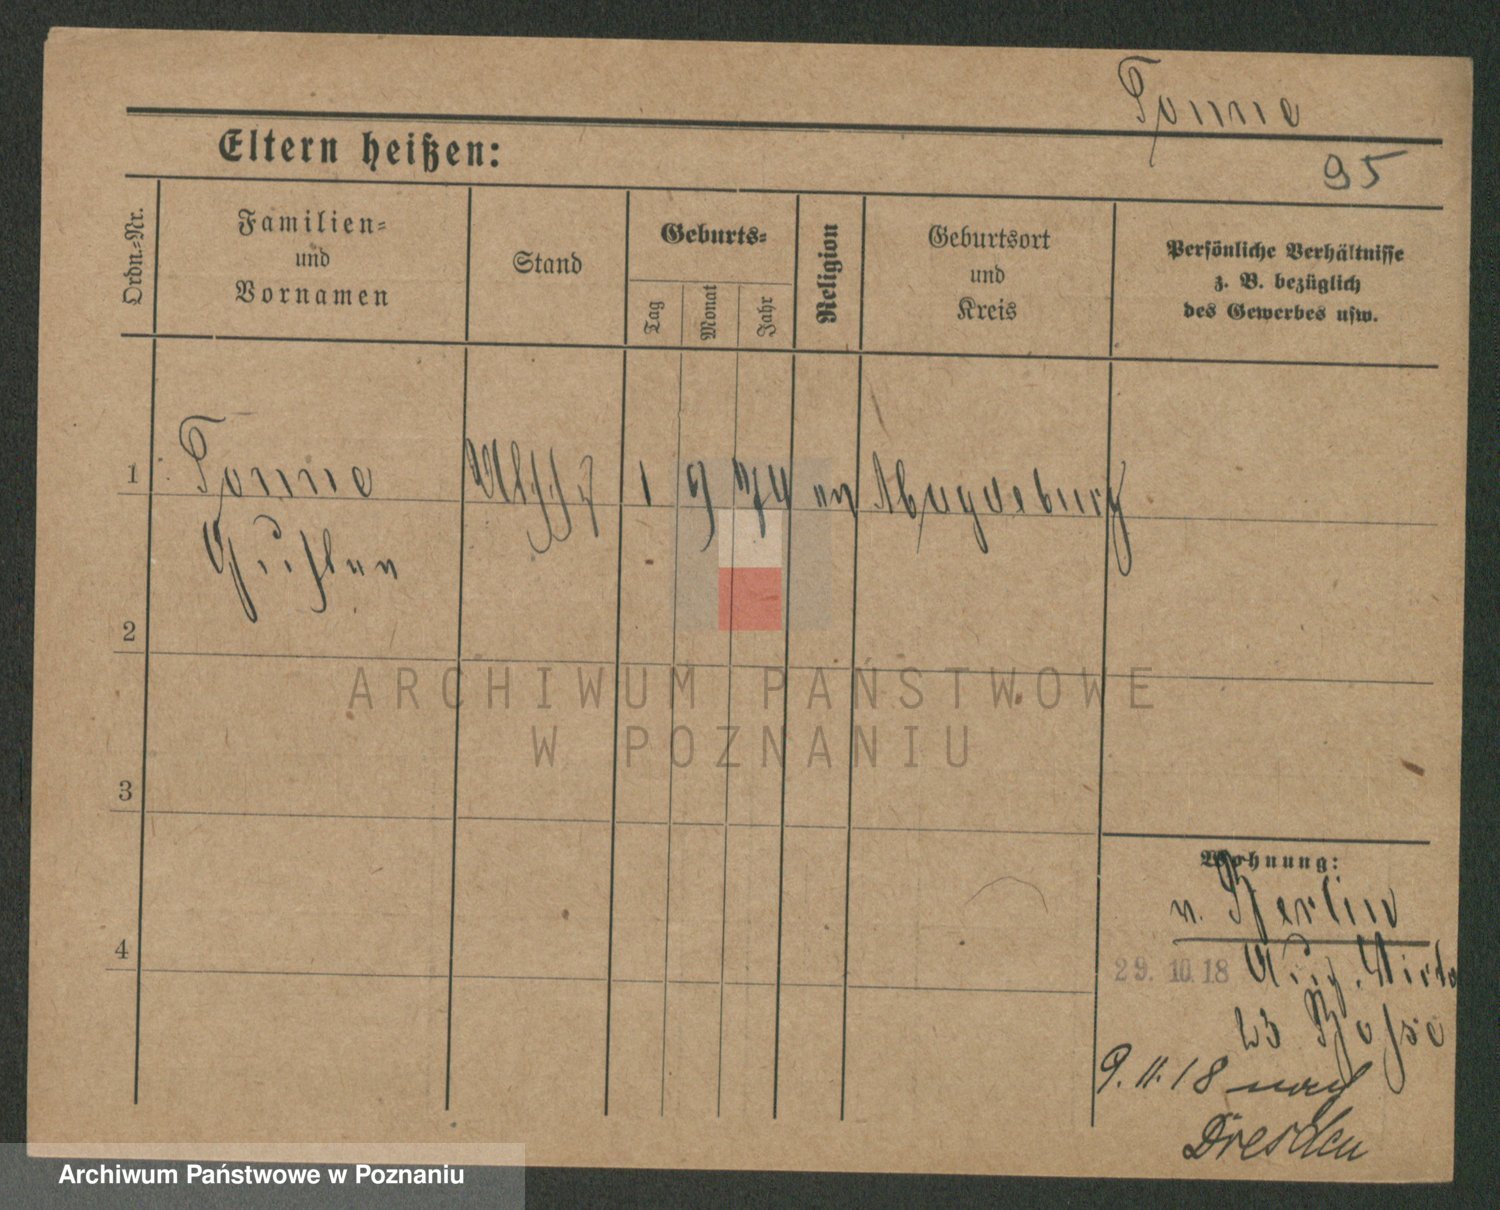 Tonne
95
Eltern heißen:
Ordn.-Nr.
Familien-
und
Vornamen
Stand
Geburts-
Tag
Monat
Jahr
Religion
Geburtsort
und
Kreis
Persönliche Verhältnisse
z. B. bezüglich
des Gewerbes usw.
1
Tonne
1 9 74 ev Magdeburg
Gustav
2
3
4
ARCHIWUM PAŃSTWOWE
W POZNANIU
Wohnung:
v. Berlin
29.10.18
23 Posse
9.11.18 nach
Dresden
Archiwum Państwowe w Poznaniu